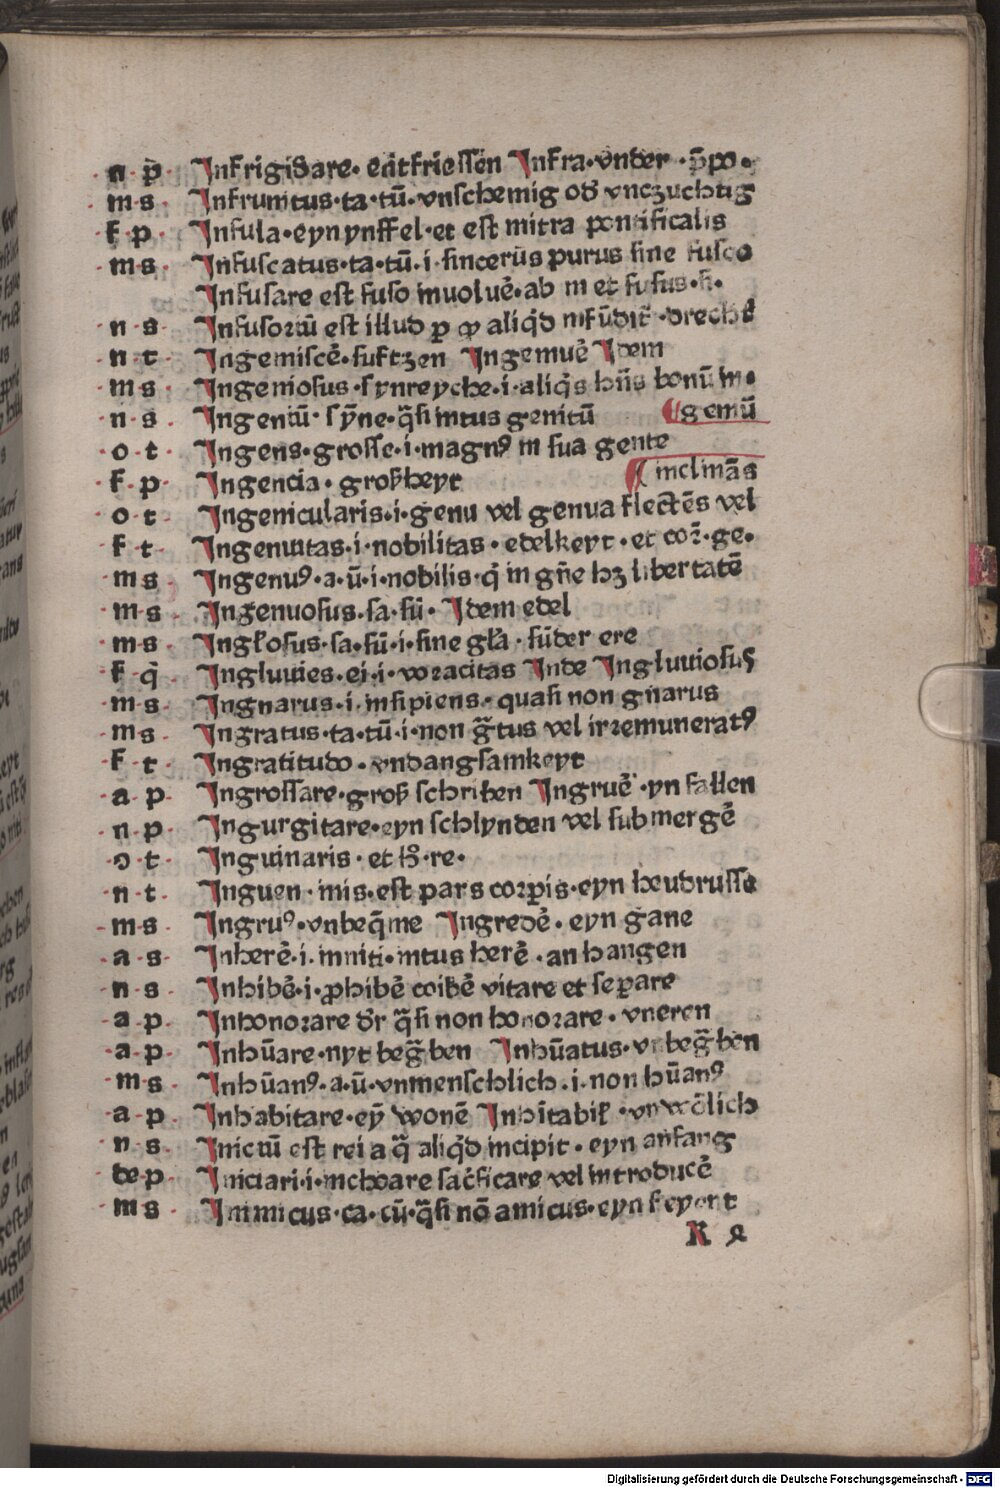 n p̄ Infrigidare · entfriessen Infra · vnder · p̄po ·
m s Infrunitus · ta · tū · vnschemig od̕ vnczuchtig
f p Infula · eyn ynffel · et est mitra pontificalis
m s Infuscatus · ta · tū · i · sincerus purus sine fusco
Infusare est fuso inuoluē · ab in et fusus · si ·
n s Infusoriū est illud ꝑ qȝ aliqd̕ infūdit̕ · drechter
n t Ingemiscē · suftzen Ingemuē Idem
m s Ingeniosus · synreyche · i · aliqs hn̄s bonū in ·
n s Ingeniū · syne · q̄si intus genitū ¶ geniū
o t Ingens · grosse · i · magnꝰ in sua gente
f p Ingencia · groszheyt ¶ inclinās
o t Ingenicularis · i · genu vel genua flectēs vel
f t Ingenuitas · i · nobilitas · edelkeyt · et cor̄ · ge ·
m s Ingenuꝰ · a · ū · i · nobilis · q̕ in gn̄e hȝ libertatē
m s Ingenuosus · sa · sū · Idem edel
m s Inglosus · sa · sū · i · sine gl̄a · sūder ere
f q̄ Ingluuies · ei · i · voracitas Inde Ingluuiosus
m s Ingnarus · i · insipiens · quasi non gnarus
m s Ingratus · ta · tū · i · non gr̄tus vel irremuneratꝰ
f t Ingratitudo · vndangsamkeyt
a p Ingrossare · grosz schriben Ingruē · yn fallen
n p Ingurgitare · eyn schlynden vel submergē
o t Inguinaris · et h̄ · re ·
n t Inguen · inis · est pars corꝑis · eyn heudrusse
m s Ingruꝰ · vnbeq̄me Ingredē · eyn gane
a s Inherē · i · inniti · intus herē · an hangen
n s Inhibē · i · ꝓhibē coibē vitare et seꝑare
a p Inhonorare d̕r q̄si non honorare · vneren
a p Inhūare · nyt begr̄ben Inhūatus · vnbegr̄ben
m s Inhūanꝰ · a · ū · vnmenschlich · i · non hūanꝰ
a p Inhabitare · eȳ wonē Inhītabil̕ · vnwōlich
n s Iniciū est rei a q̄ aliqd̕ incipit · eyn anfang
de p Iniciari · i · inchoare sac̕ficare vel introducē
m s Inimicus · ca · cū · q̄si nō amicus · eyn feyent
K 2
Digitalisierung gefördert durch die Deutsche Forschungsgemeinschaft · DFG